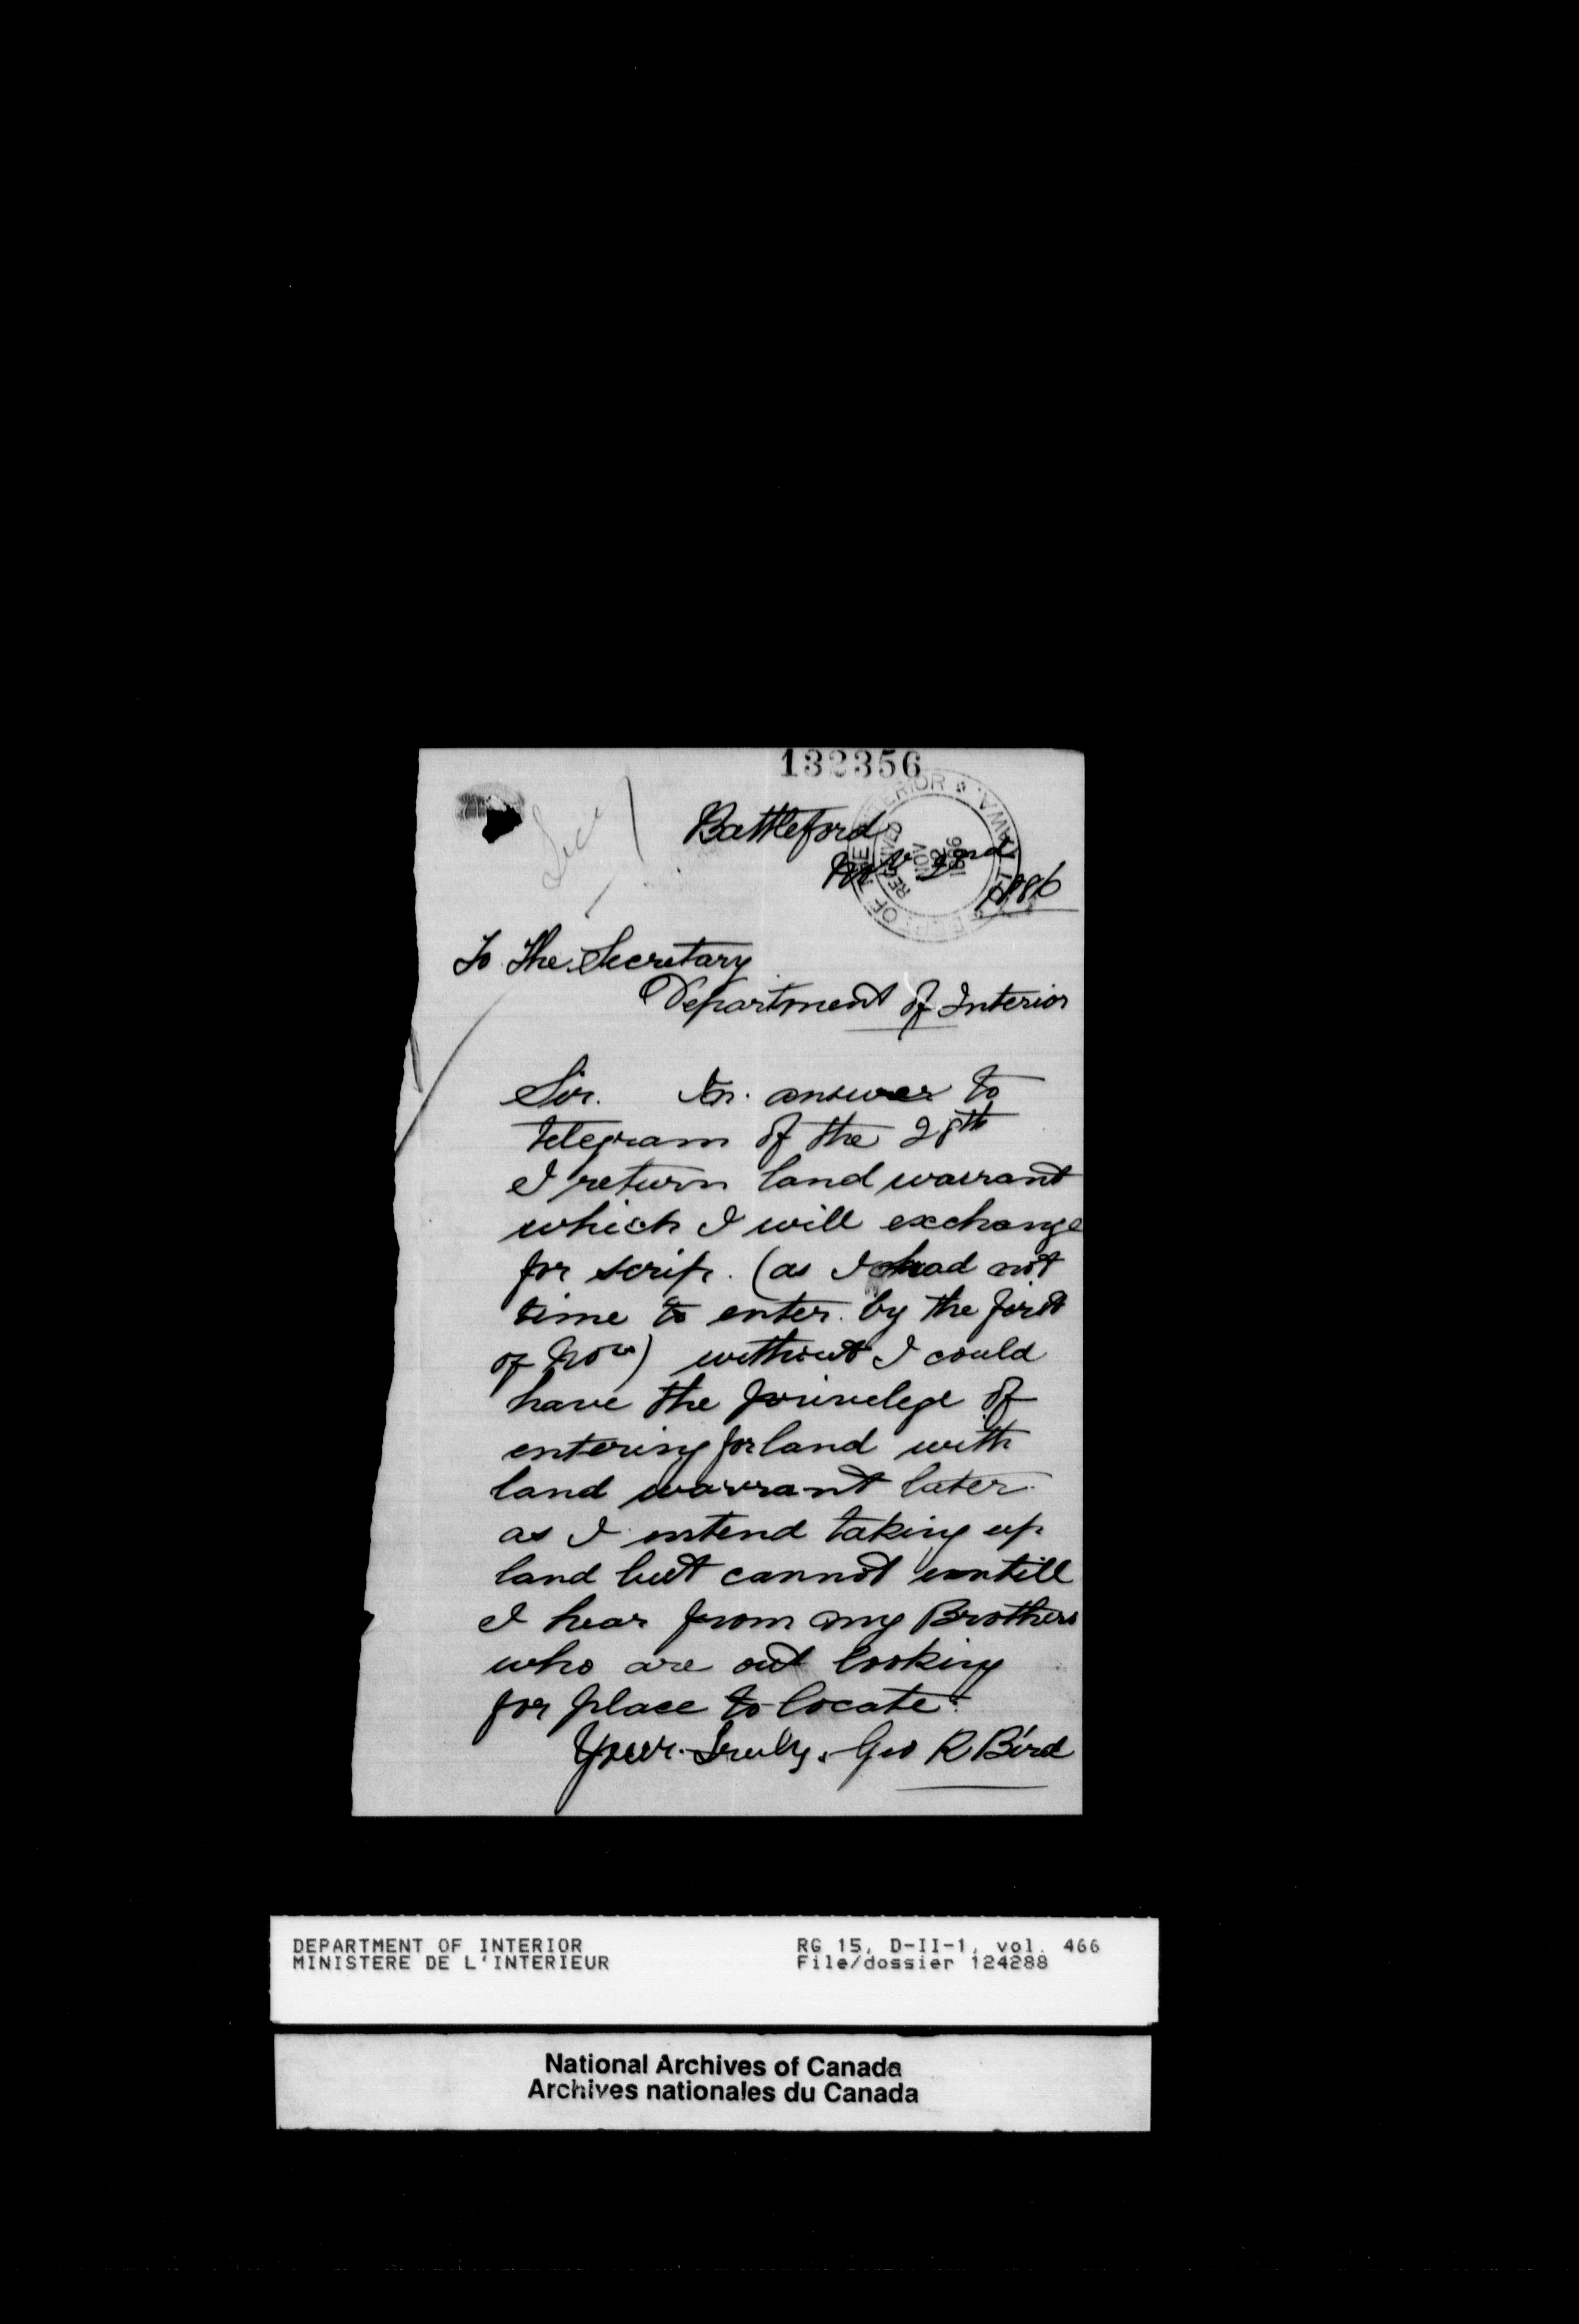 132356
Battleford
Nov 2nd
1886
DEPT OF THE INTERIOR * OTTAWA *
RECEIVED
NOV
12
1886
To The Secretary
Department of Interior
Sir. In answer to
telegram of the 28th
I return land warrant
which I will exchange
for scrip. (as I had not
time to enter by the first
of Nov) without I could
have the privelege of
entering for land with
land warrant later
as I intend taking up
land but cannot untill
I hear from my Brothers
who are out looking
for place to locate.
Your Truly. Geo R Bird
DEPARTMENT OF INTERIOR
MINISTERE DE L'INTERIEUR
RG 15, D-II-1, vol. 466
File/dossier 124288
National Archives of Canada
Archives nationales du Canada